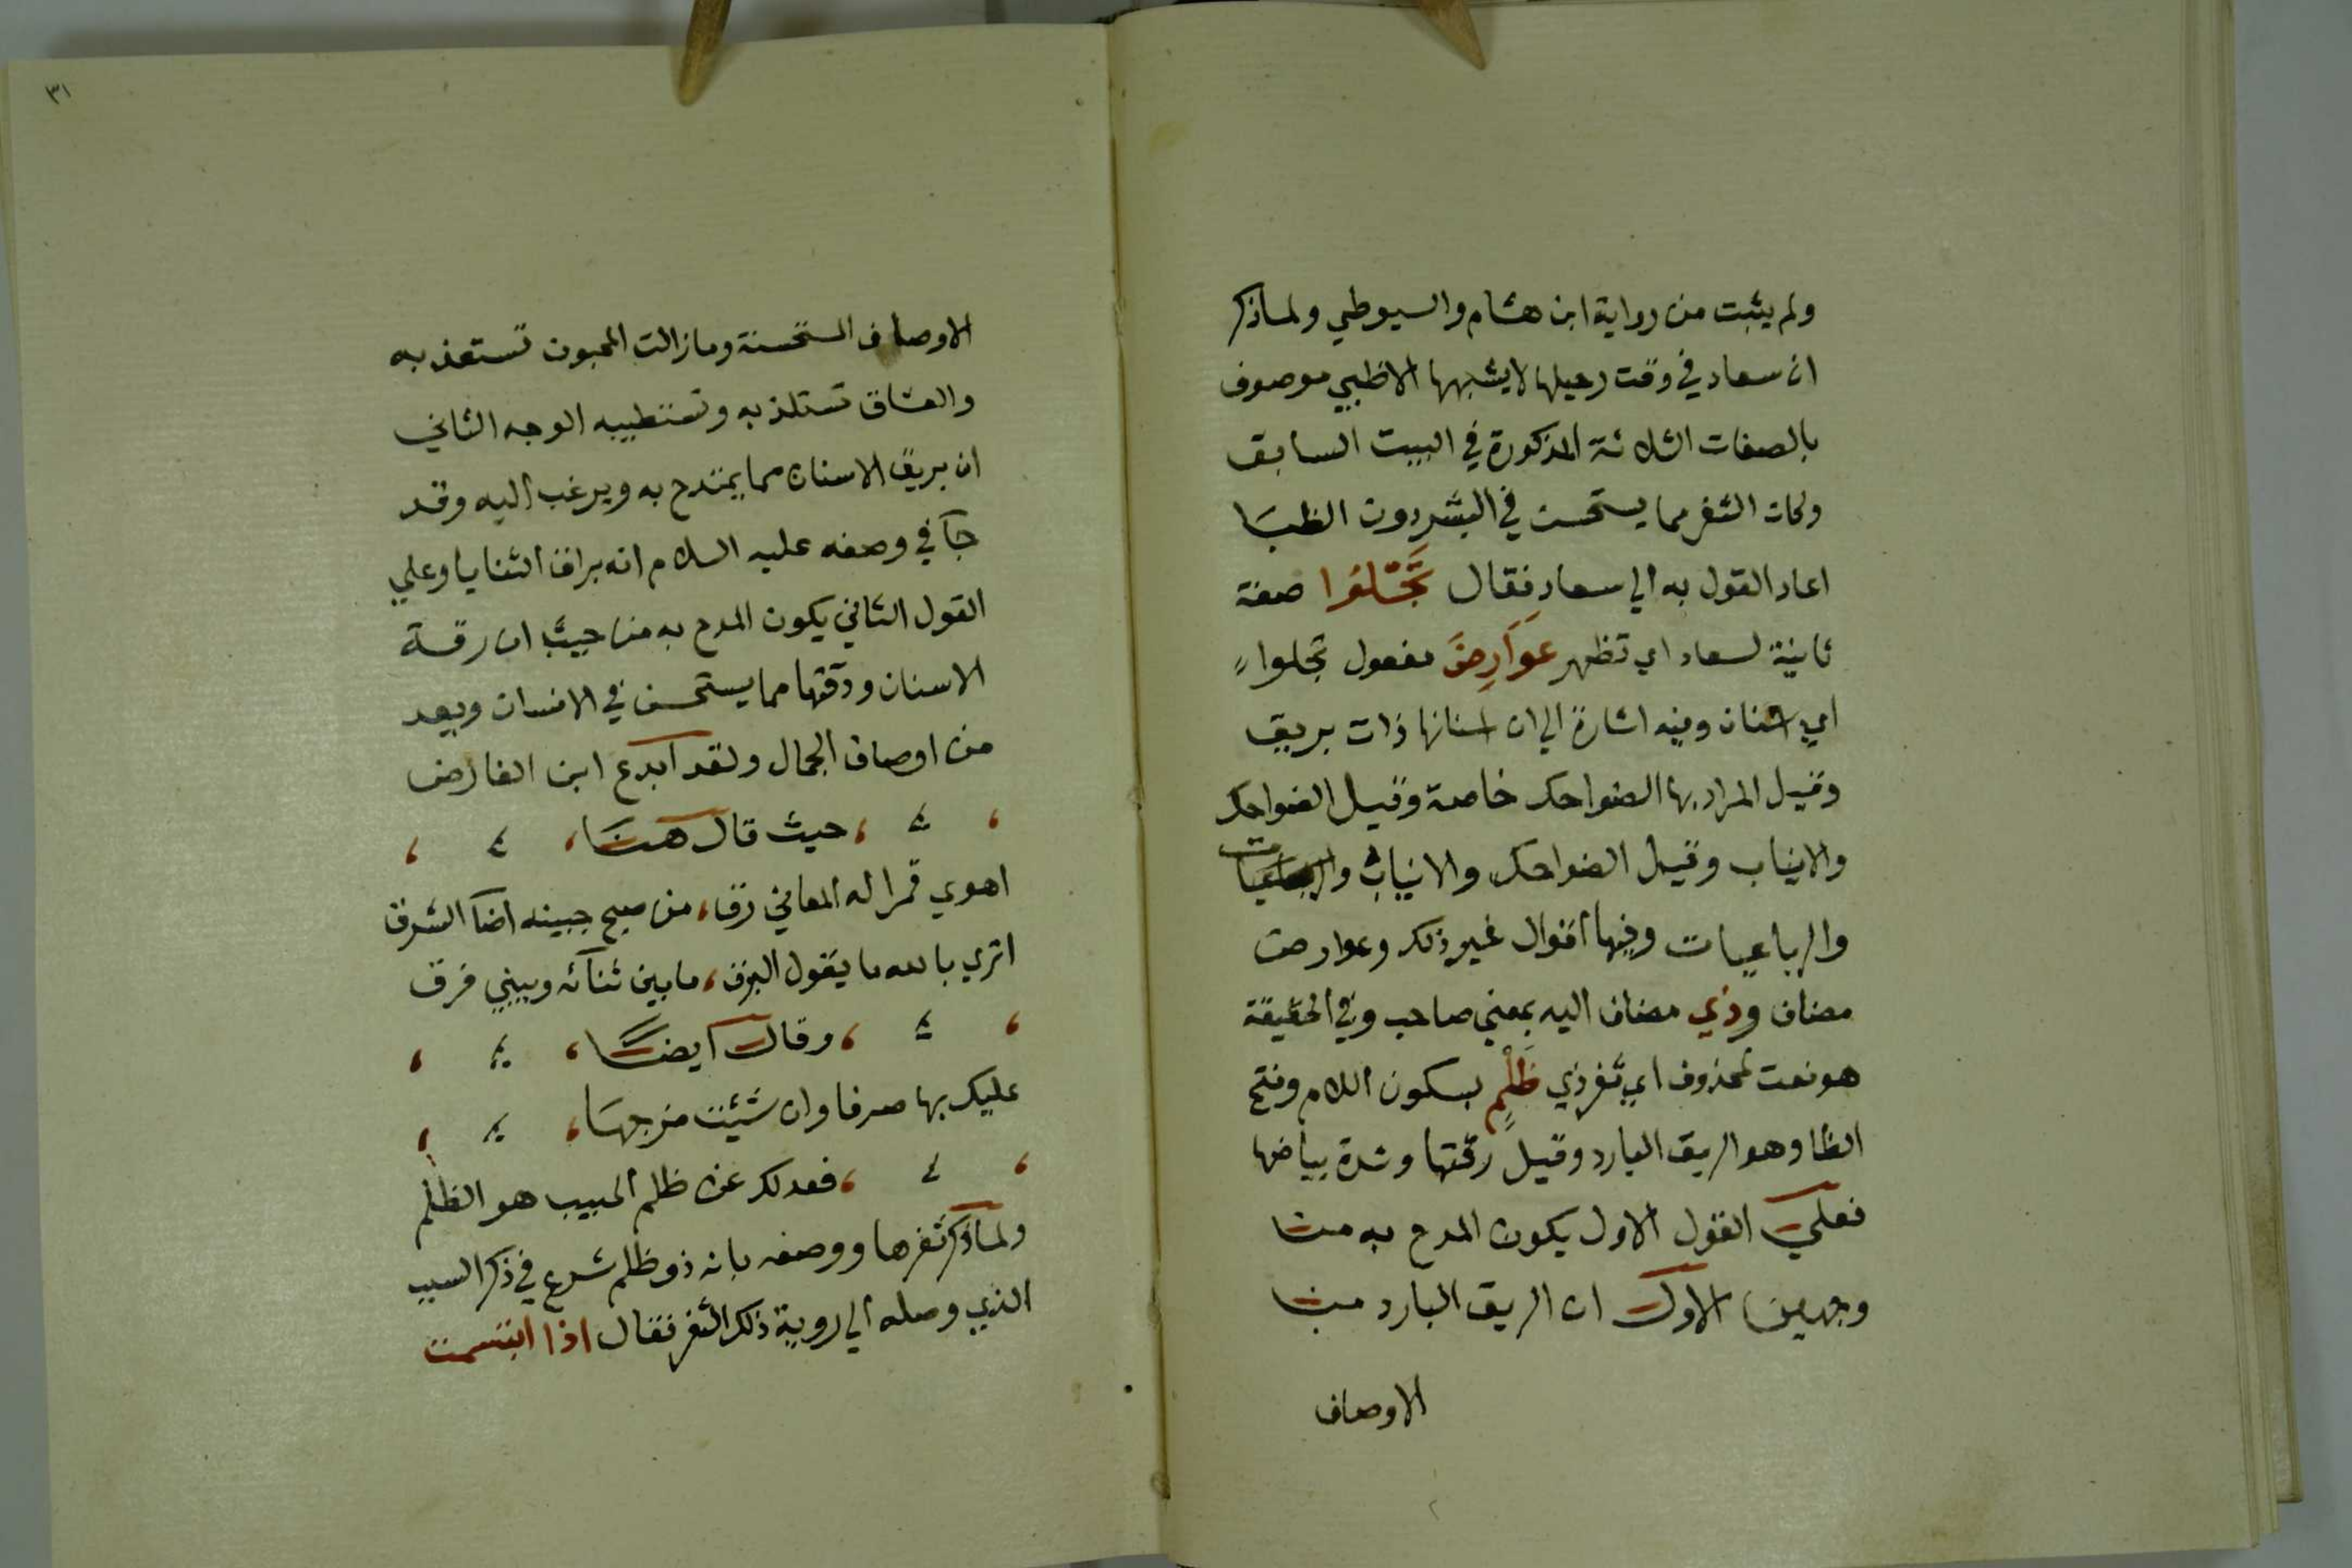 ولم يثبت من رواية ابن هشام والسيوطي ولما ذكر
ان سعاد في وقت رحيلها لا يشبهها الا ظبي موصوف
بالصفات الثلاثة المذكورة في البيت السابق
وكان الثغر مما يستحسن في البشر دون الظبا
اعاد القول به الي سعاد فقال تَجْلُوا صفة
ثانية لسعاد اي تظهر عَوَارِضَ مفعول تجلوا
اي اسنان وفيه اشارة الي ان اسنانها ذات بريق
وقيل المراد بها الضواحك خاصة وقيل الضواحك
والانياب وقيل الضواحك والانياب
والرباعيات وفيها اقوال غير ذلك وعوارض
مضاف وذي مضاف اليه بمعني صاحب وفي الحقيقة
هو نعت لمحذوف اي ثغر ذي ظَلْمٍ بسكون اللام وفتح
الظا وهو الريق البارد وقيل رقتها وشدة بياضها
فعلي القول الاول يكون المدح به من
وجهين الاول ان الريق البارد من
الاوصاف
٣١
الاوصاف المستحسنة وما زالت المحبون تستعذبه
والعشاق تستلذ به وتستطيبه الوجه الثاني
ان بريق الاسنان مما يمتدح به ويرغب اليه وقد
جآ في وصفه عليه السلام انه براق الثنايا وعلي
القول الثاني يكون المدح به من حيث ان رقة
الاسنان ودقتها مما يستحسن في الانسان ويعد
من اوصاف الجمال ولقد ابدع ابن الفارض
حيث قال هنا
اهوي قمرا له المعاني رق، من صبح جبينه اضآ الشرق
اتري بالله ما يقول البرق، ما بين ثنآئه وبيني فرق
وقال ايضًا
عليك بها صرفا وان شئت مزجها
فعدلك عن ظلم الحبيب هو الظلم
ولما ذكر ثغرها ووصفه بانه ذو ظلم شرع في ذكر السبب
الذي وصله الي روية ذلك الثغر فقال اذا ابتسمت